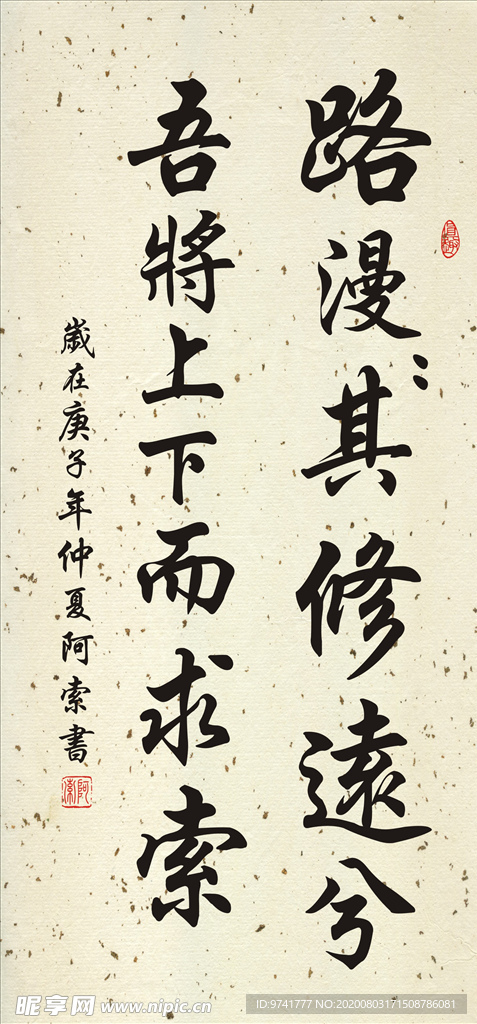 路漫〻其修遠兮
吾將上下而求索
歲在庚子年仲夏阿索書
阿索
昵享网 www.nipic.cn
ID:9741777 NO:20200803171508786081